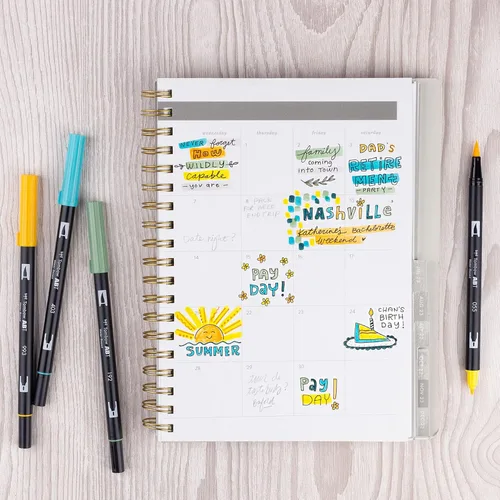 wednesday
thursday
friday
saturday
NEVER forget
HOW
WILDLY
capable
you are
1
2
family
coming
into Town
DAD'S
RETIRE
MENT
PARTY
NASHVILLE
Katherine's Bachelorette
Weekend
date night?
PAY
DAY!
SUMMER
CHAN'S
BIRTH
DAY!
PAY
DAY!
Tombow ABT
993
Tombow ABT
403
Tombow ABT
192
ABT
055